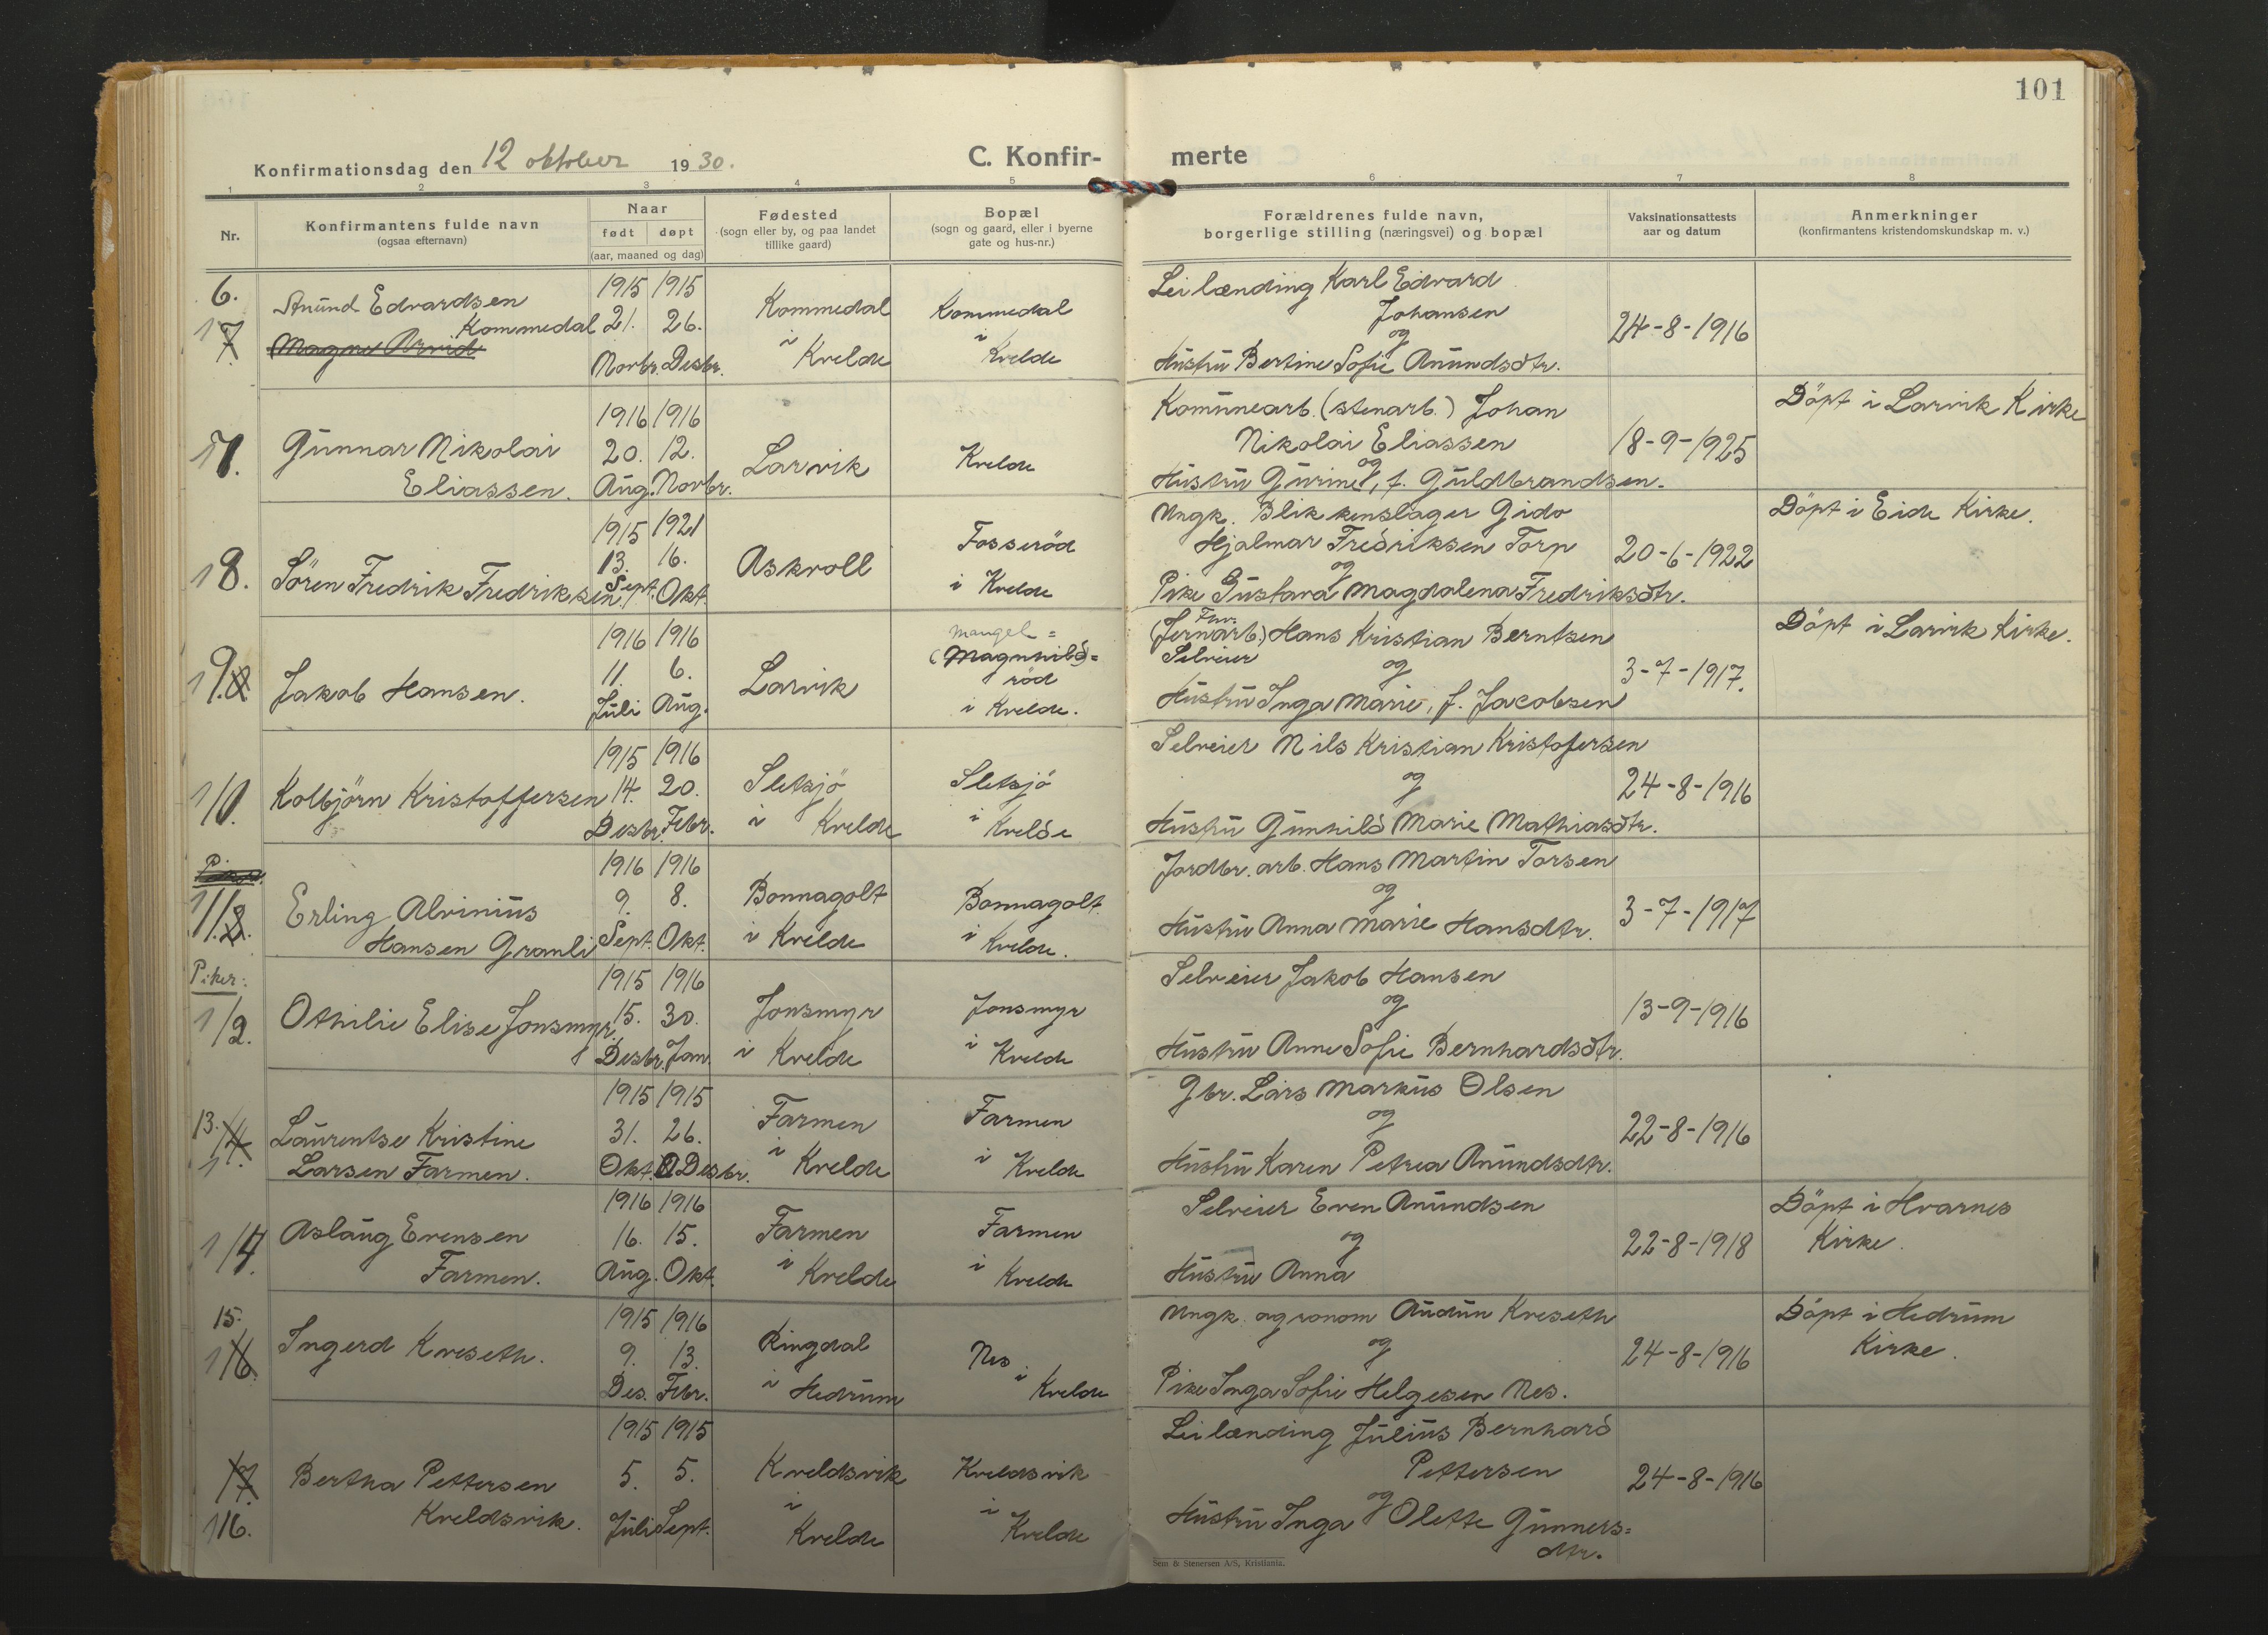 101
Konfirmationsdag den 12 oktober 1930.
C. Konfir-merte
1 2 3 4 5 6 7 8
Nr.
Konfirmantens fulde navn
(ogsaa efternavn)
Naar
født døpt
(aar, maaned og dag)
Fødested
(sogn eller by, og paa landet
tillike gaard)
Bopæl
(sogn og gaard, eller i byerne
gate og hus-nr.)
Forældrenes fulde navn,
borgerlige stilling (næringsvei) og bopæl
Vaksinationsattests
aar og datum
Anmerkninger
(konfirmantens kristendomskundskap m. v.)
6.
1 7.
Anund Edvardsen
Kommedal
Magne Arvid
1915 1915
21. 26.
Novbr. Desbr.
Kommedal
i
Kvelde
Kommedal
i
Kvelde
Leilænding Karl Edvard
Johansen
og
Hustru Bertine Sofie Anundsdtr.
24-8-1916
1 7.
Gunnar Nikolai
Eliassen.
1916 1916
20. 12.
Aug. Novbr.
Larvik
Kvelde
Komunearb. (stenarb.) Johan
Nikolai Eliassen
og
Hustru Gurine, f. Guldbrandsen.
18-9-1925
Döpt i Larvik Kirke
1 8.
Sören Fredrik Fredriksen.
1915 1921
13. 16.
Sept. Okt.
Askvoll
Fosseröd
i Kvelde
Ungk. Blikkenslager Gido
Hjalmar Fredriksen Torp
og
Pike Gustava Magdalena Fredriksdtr.
20-6-1922
Döpt i Eide Kirke.
1 9.
Jakob Hansen.
1916 1916
11. 6.
Juli Aug.
Larvik
Mangel=
(Magnhild)=
röd
i Kvelde.
Fhv.
(Jernarb.) Hans Kristian Berntsen
Selveier
og
Hustru Inga Marie, f. Jacobsen
3-7-1917.
Döpt i Larvik Kirke.
1 10.
Kolbjörn Kristoffersen
1915 1916
14. 20.
Desbr. Febr.
Sletsjö
i Kvelde
Sletsjö
i Kvelde
Selveier Nils Kristian Kristofersen
og
Hustru Gunhild Marie Mathiasdtr.
24-8-1916
P.
1 11.
Erling Alvinius
Hansen Granli
1916 1916
9. 8.
Sept. Okt.
Bonnagolt
i Kvelde
Bonnagolt
i Kvelde.
Jordbr. arb. Hans Martin Torsen
og
Hustru Anna Marie Hansdtr.
3-7-1917
Piker:
1 12.
Othilie Elise Jonsmyr.
1915 1916
15. 30.
Desbr. Jan.
Jonsmyr
i Kvelde
Jonsmyr
i Kvelde
Selveier Jakob Hansen
og
Hustru Anne Sofie Bernhardsdtr.
13-9-1916
13. 14.
1
Laurentse Kristine
Larsen Farmen.
1915 1915
31. 26.
Okt. Desbr.
Farmen
i Kvelde
Farmen
i Kvelde
Gbr. Lars Markus Olsen
og
Hustru Karen Petrea Anundsdtr.
22-8-1916
1 14.
Aslaug Evensen
Farmen.
1916 1916
16. 15.
Aug. Okt.
Farmen
i Kvelde
Farmen
i Kvelde
Selveier Even Anundsen
og
Hustru Anna
22-8-1918
Döpt i Hvarnes
Kirke.
15.
1 16.
Ingerd Kveseth.
1915 1916
9. 13.
Des. Febr.
Ringdal
i Hedrum
Nes
i Kvelde
Ungk. agronom Audun Kveseth
og
Pike Inga Sofie Helgesen Nes.
24-8-1916
Döpt i Hedrum
Kirke.
17.
1 16.
Bertha Pettersen
Kveldsvik.
1915 1915
5. 5.
Juli Sept.
Kveldsvik
i
Kvelde
Kveldsvik
i
Kvelde
Leilænding Julius Bernhard
Pettersen
og
Hustru Inga Olette Gunners=
dtr.
24-8-1916
Sem & Stenersen A/S, Kristiania.